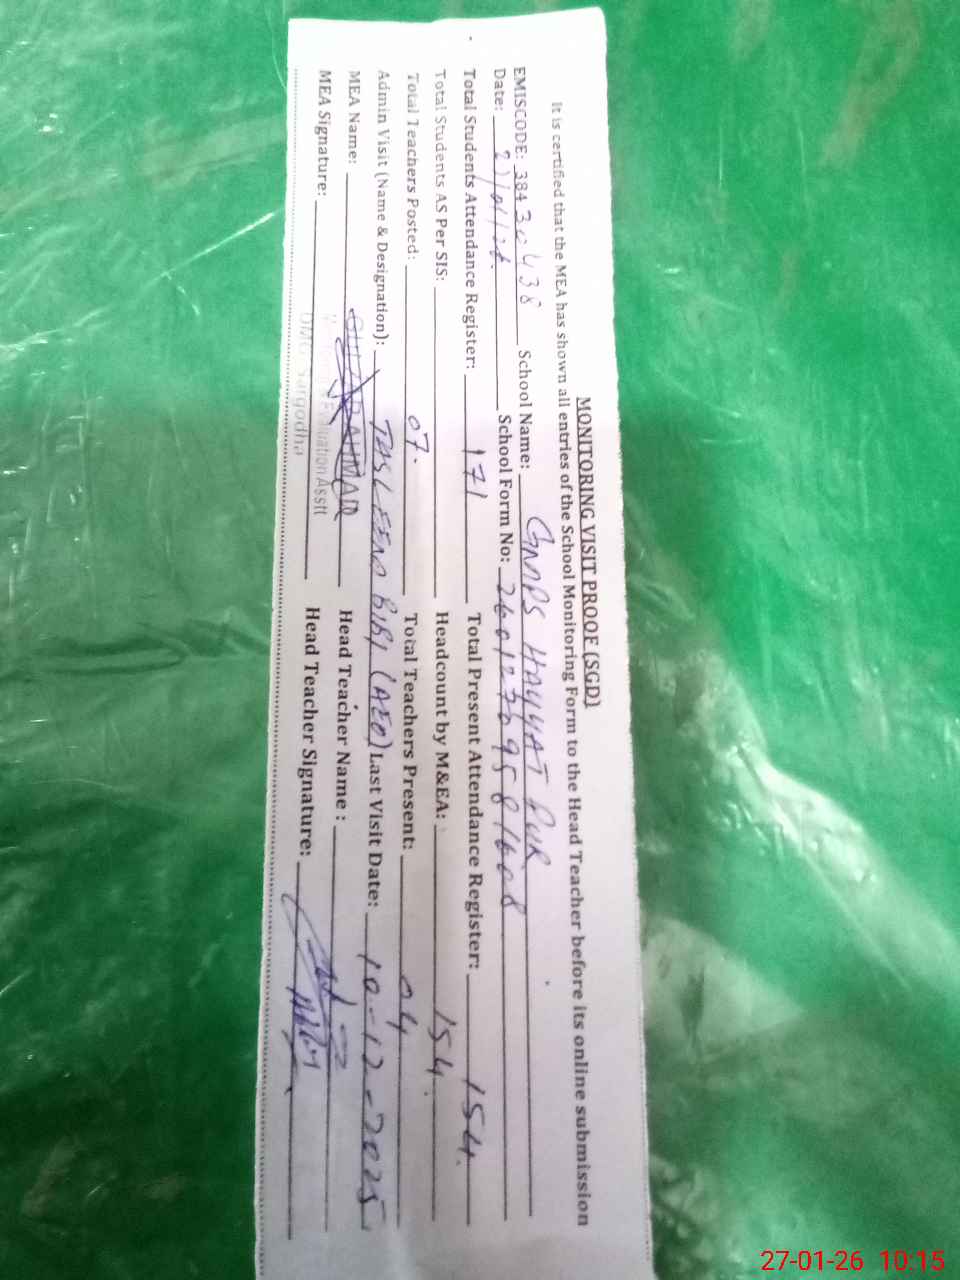 MONITORING VISIT PROOF (SGD)
It is certified that the MEA has shown all entries of the School Monitoring Form to the Head Teacher before its online submission
EMISCODE: 38430438 School Name: GMPS HAYYAT PUR
Date: 27/01/26. School Form No: 26012709581608
Total Students Attendance Register: 171 Total Present Attendance Register: 154.
Total Students AS Per SIS: Headcount by M&EA: 154.
Total Teachers Posted: 07. Total Teachers Present: 04
Admin Visit (Name & Designation): TASLEEM BIBI (AEO) Last Visit Date: 10-12-2025
MEA Name: Head Teacher Name :
Evaluation Asstt
MEA Signature: Head Teacher Signature:
Sargodha
27-01-26 10:15